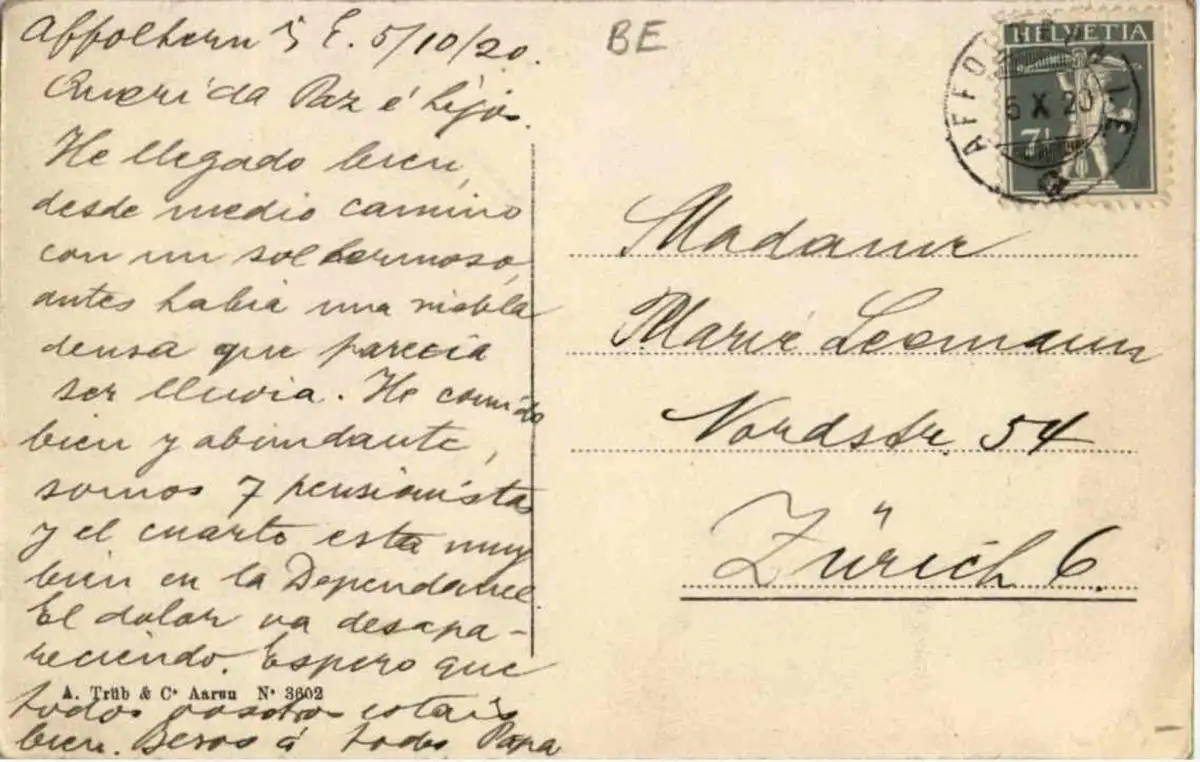 Affoltern i/E. 5/10/20.
Querida Paz é hijos.
He llegado bien,
desde medio camino
con un sol hermoso,
antes habia una niebla
densa que parecia
ser lluvia. He comido
bien y abundante,
somos 7 pensionistas
y el cuarto esta muy
bien en la Dependance.
El dolor va desapa-
reciendo. Espero que
todos vosotros estais
bien. Besos á todos Papa
A. Trüb & Cº Aarau Nº 3602
BE
HELVETIA
7½
AFFOLTERN
5 X 20
Madame
Marie Leemann
Nordstr. 54
Zürich 6.